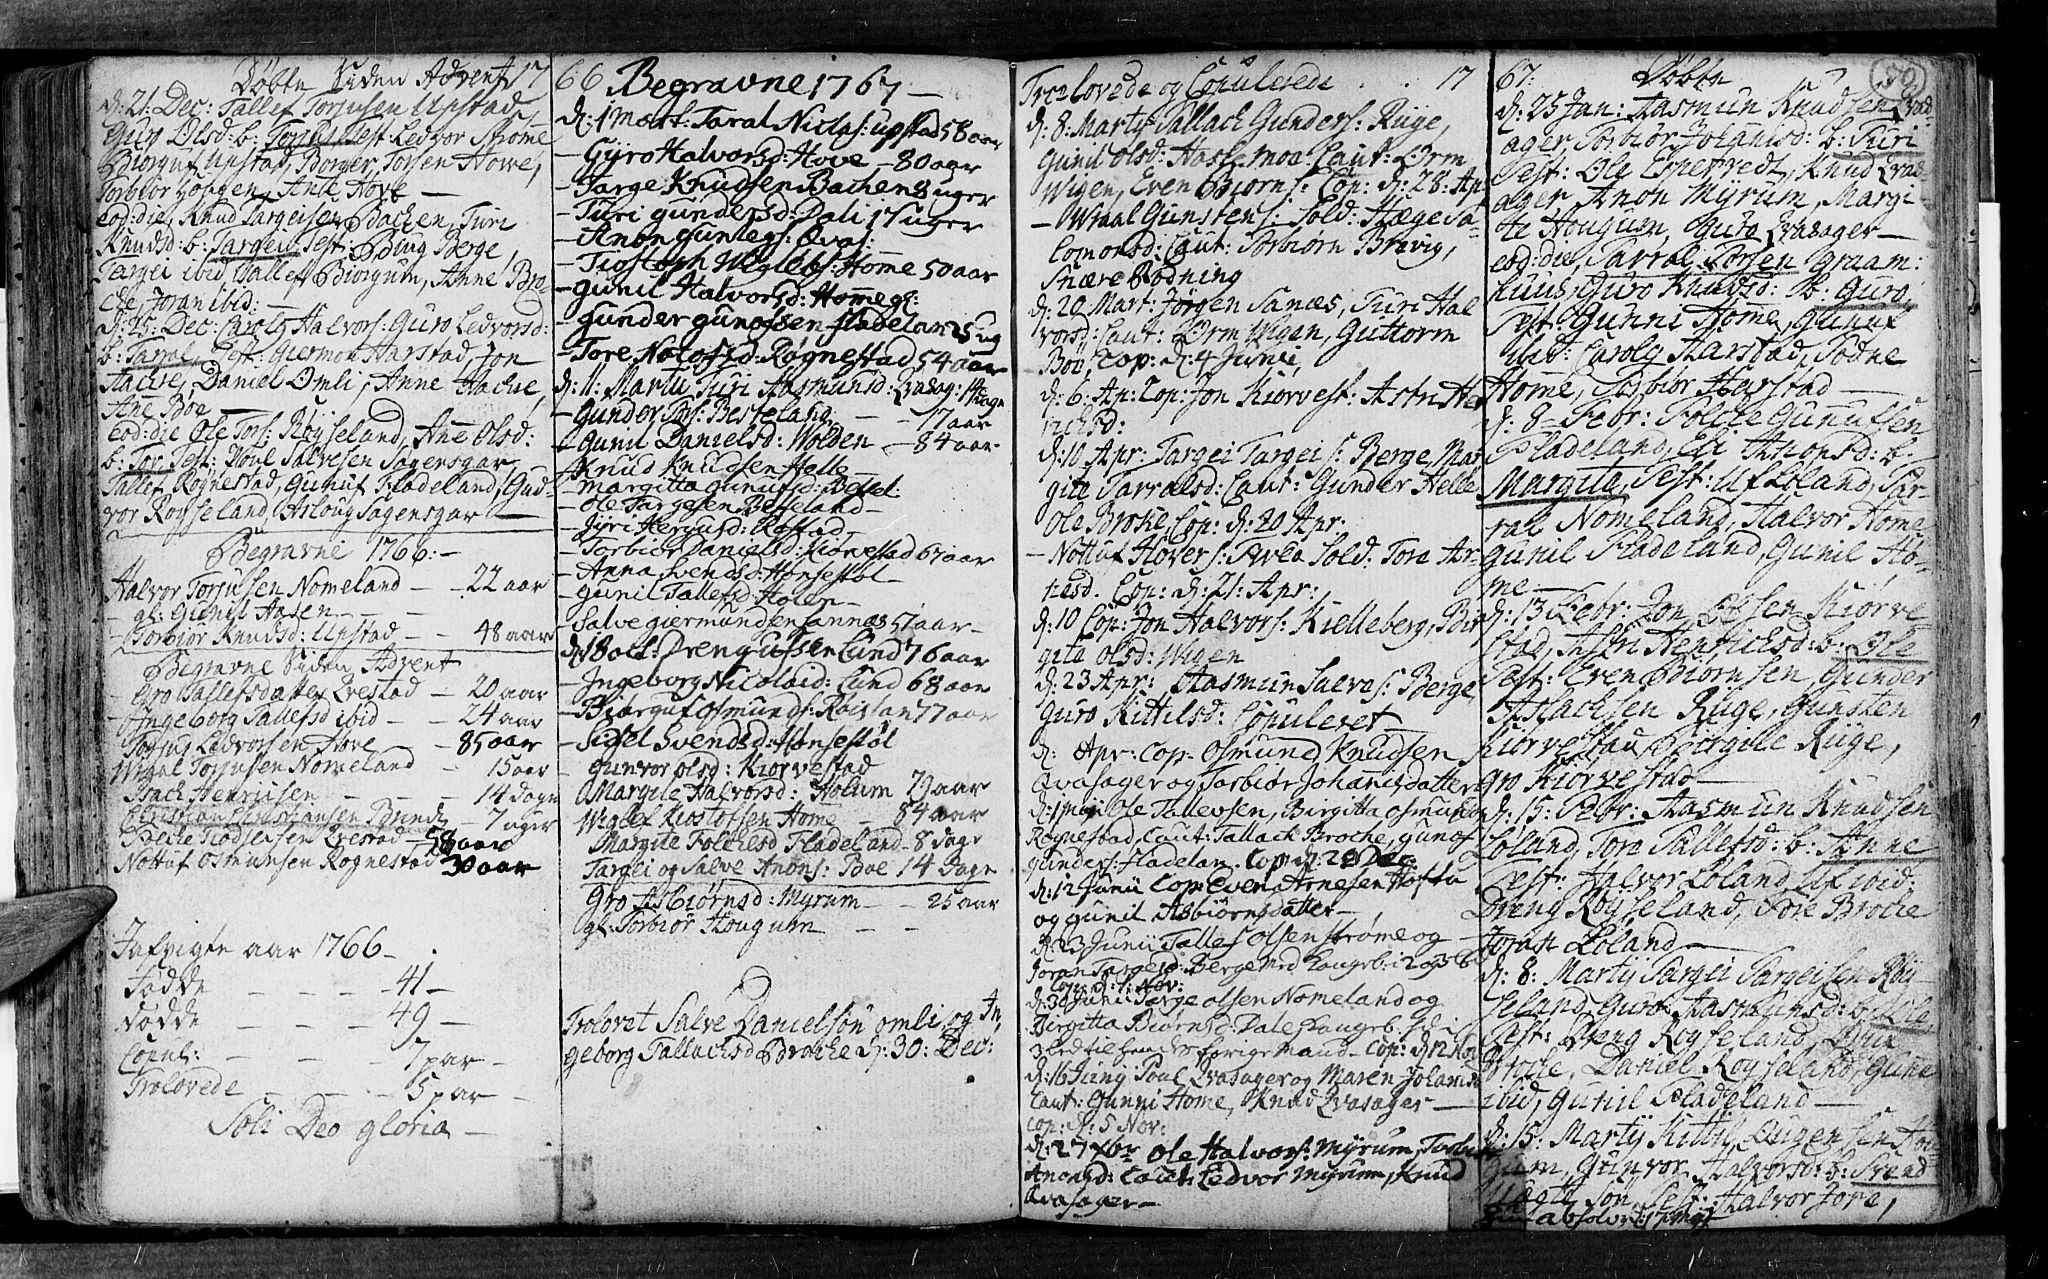 Døbte Siden Advent 17
d: 21: Dec: Tallef Torjusen Upstad
Guro Olsd: b: Torjus Test: Ledvor Strome
Biørguf Upstad, Borger, Torsen Howe,
Torbiør Hougen, Ane Hove —
eod: die, Knud Targeisen Bachen, Turi
Knudsd: b: Targei Test: Berge,
Targei ibid, Tallef Biørgum, Anne Bro-
che, Joran ibid: —
d: 25: Dec: Carols Halvors: Guro Ledvorsd:
b: Tarral, Test: Giermon Harstad, Jon
Hachse, Daniel Omli, Anne Hachse,
Ane Bøe —
eod: die Ole Tors: Røyseland, Ane Olsd:
b: Tor Test: Salvesen Sogensgar
Tallef Rognestad, Gunuf Fladeland, Gud-
vor Røyseland, Aslaug Sogensgar —
Begravne 1766: —
Halvor Torjusen Nomeland — 22 aar
gl: Gunil Aasen — — —
Torbiør Knudsd: Upstad — — 48 aar
Begravne Siden Advent
Gro Tallefsdatter Qvestad — 20 aar
Ingeborg Tallefsd ibid — — 24 aar
Torjus Ledvorssen Hove — 85 aar
Wraal Torjusen Nomeland — 15 aar
Isach Henrichsen — — — 14 Dage
Christian Christiansen — 7 uger
58 aar
Nottuf Osmunsen Rognestad 30 aar
aar 1766 —
Fødde — — — 41 —
Dødde — — — 49 —
Copul: — — — 7 par —
Trolovede — — — 5 par —
Soli Deo gloria —
66 Begravne 1767 —
d: 1 mart: Taral Niclas: upstad 58 aar
— Gyro Halvorsd: Hove — 80 aar
— Targe Knudsen Bachen 8 uger
— Turi gundersd: Dali 17 uger
— Anon Gunlegs: Qvas:
— Wiglefs: Homme 50 aar
— Gunil Halvorsd: Homme gl:
— Gunder gunofsen fladelan 25 ug
— Tore Notofsd: Røgnestad 54 aar
d: 11: Martii Turi Aasmunsd: Qvasag: 14 Dage
— Gunder Besseland — 17 aar
— Gunil Danielsd: Wolden — 84 aar
— Knud Knudsen Helle —
— Margitta gunufsd: Bessel:
— Ole Targesen Besseland —
— Jyri Hergusd:
— Torbiør Danielsd: Kiørvestad 67 aar
— Anna Svendsd: Honsestøl —
— Gunil Tallefsd: Holen —
Salve giermundsen Sannæs 57 aar —
d: 18 oct: Dreng ufssen Lund 76 aar
— Ingeborg Nicolaid: Lund 68 aar
— Biørguf osmunds: 77 aar
— Sidsel Svendsd: Honsestøl
Gunvor olsd: Kiørvestad
Margite Halvorsd: Holum 79 aar
Wiglef Kiostofsen Home — 84 aar
Margite Folchesd Fladeland — 8 dage
Targei og Salve Anons: Boe 14 Dage
Gro Asbiørnsd: Myrum — — 25 aar
gl: Torbiør Hougum — —
Trolovet Salve Danielsøn omli og In-
geborg Tallachsd Broche d: 30: Dec:
Trolovede og Copulerede 17
d: 8: Martij Tallach Gunders: Rüge,
Gunil Olsd: Caut: Orm
Wigen, Even Biørns: Cop: d: 28: Ap:
— Wraal Gunstens: Sold: Hæge Sa-
lomonsd: Caut: Torbiørn Bravig,
Snære Bodning
d: 20 Mart: Jørgen Sanæs, Turi Hal
vorsd: Caut: Orm Wigen, Guttorm
Boe, Cop: d: 4 Junii,
d: 6: Ap: Cop: Jon Kiørvest: Astri Hen
richsd:
d: 10 Apr: Targei Targeis: Berge, Mar
gite Tarralsd: Caut: Gunder Helle
Ole Broche, Cop: d: 20 Apr:
— Nottuf Hovers: Sold: Tore Ar
nesd. Cop: d: 21: Apr:,
d: 10 Cop: Jon Halvors: Kielleberg, Bir
gita Olsd: Wigen
d: 23 Apr: Aasmun Salves: Berge
Guro Kittilsd: Copuleret
d: Apr: Cop: Osmund Knudsen
Qvasager og Torbiør Johannisdatter
d: 1 Maji Ole Tallevsen, Birgitta Osmunds
Rognestad, Caut: Tallach Broche, gunof
gunders: fladelan. Cop d: 29 Dec:
d: 12 Junii Cop: Even Arnesen
og Gunil Asbiørnsdatter —
d: 23 Junii Tallef olsen Strøme og
Joran Targeisd: Berge
Cop: d: 1: Nov:
d: 30 Junii Targe olsen Nomeland og
Birgitta Biørnsd: Dale
Led til hendes forige Mand — Cop: d: 12 Nov
d: 16 Junij Poul Qvasager og Maren Johannis
Caut: Gunni Home, Knud Qvasager —
Cop: d: 5 Nov:
d: 27 Xbr Ole Halvors: Myrum, Torbiør
Anonsd: Caut: Ledvor Myrum, Knud
Qvasager —
67: Døbte 50
d: 25 Jan: Aasmun Knudsen Qvas
ager, Torbiør Johansd: b: Turi
Test: Ole Espetvedt, Knud Qvas-
ager, Anon Myrum, Margi-
te Hougum, Guro Qvasager —
eod: die, Tarral Torsen Graam:
huus, Guro Knudsd: b: Guro
Test: Gunni Home, Gunuf
ibid: Carols Harstad, Todne
Home, Torbiør Harstad —
d: 8: Febr: Folche Gunufsen
Fladeland, Eli Anonsd: b:
Margite, Test: Uf Loland, Tar-
ral Nomeland, Halvor Home
Gunil Fladeland, Gunil Ho-
me —
d: 13 Febr: Jon Olsen Kiørve-
stad, Astri Henrichsd: b: Ole
Test: Even Biørnsen, Gunder
Atlachsen Rüge, Gunsten
Kiørvestad, Rüge,
Gro Kiørvestad —
d: 15: Febr: Aasmun Knudsen
Loland, Tore Tallefsd: b: Anne
Test: Halvor Loland, Uf ibid:
Dreng Røyseland, Tore Broche
Joran Loland —
d: 8: Martij Targei Targeisen Røy
seland, Guro Aasmunsd: b: Ole,
Test: Dreng Røyseland,
Broche, Daniel Røyseland, Gune
ibid, Gunil Fladeland —
d: 15: Martij Kittil Ougensen Hou-
gum, Gunvor Halvorsd: b: Svend
Uægte Søn Test: Halvor Jore,
absolv: d: 17 Maj